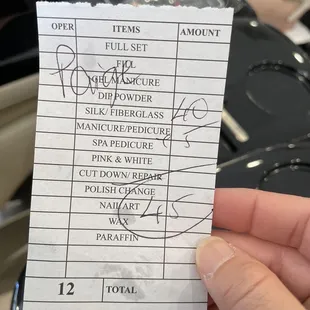 OPER ITEMS AMOUNT
FULL SET
FILL
GEL MANICURE
DIP POWDER
SILK/ FIBERGLASS 40
MANICURE/PEDICURE 5
SPA PEDICURE
PINK & WHITE
CUT DOWN/ REPAIR
POLISH CHANGE
NAIL ART 45
WAX
PARAFFIN
12 TOTAL